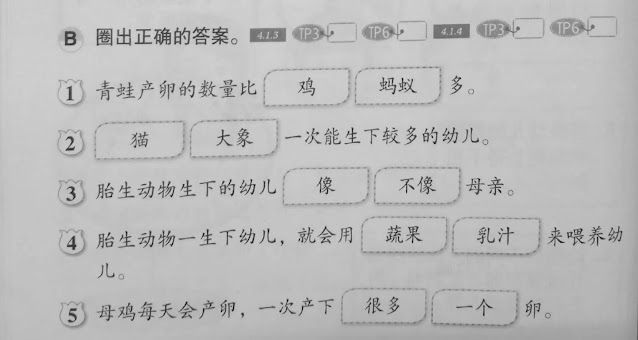 B 圈出正确的答案。 4.1.3 TP3 TP6 4.1.4 TP3 TP6
1 青蛙产卵的数量比 鸡 蚂蚁 多。
2 猫 大象 一次能生下较多的幼儿。
3 胎生动物生下的幼儿 像 不像 母亲。
4 胎生动物一生下幼儿，就会用 蔬果 乳汁 来喂养幼
儿。
5 母鸡每天会产卵，一次产下 很多 一个 卵。